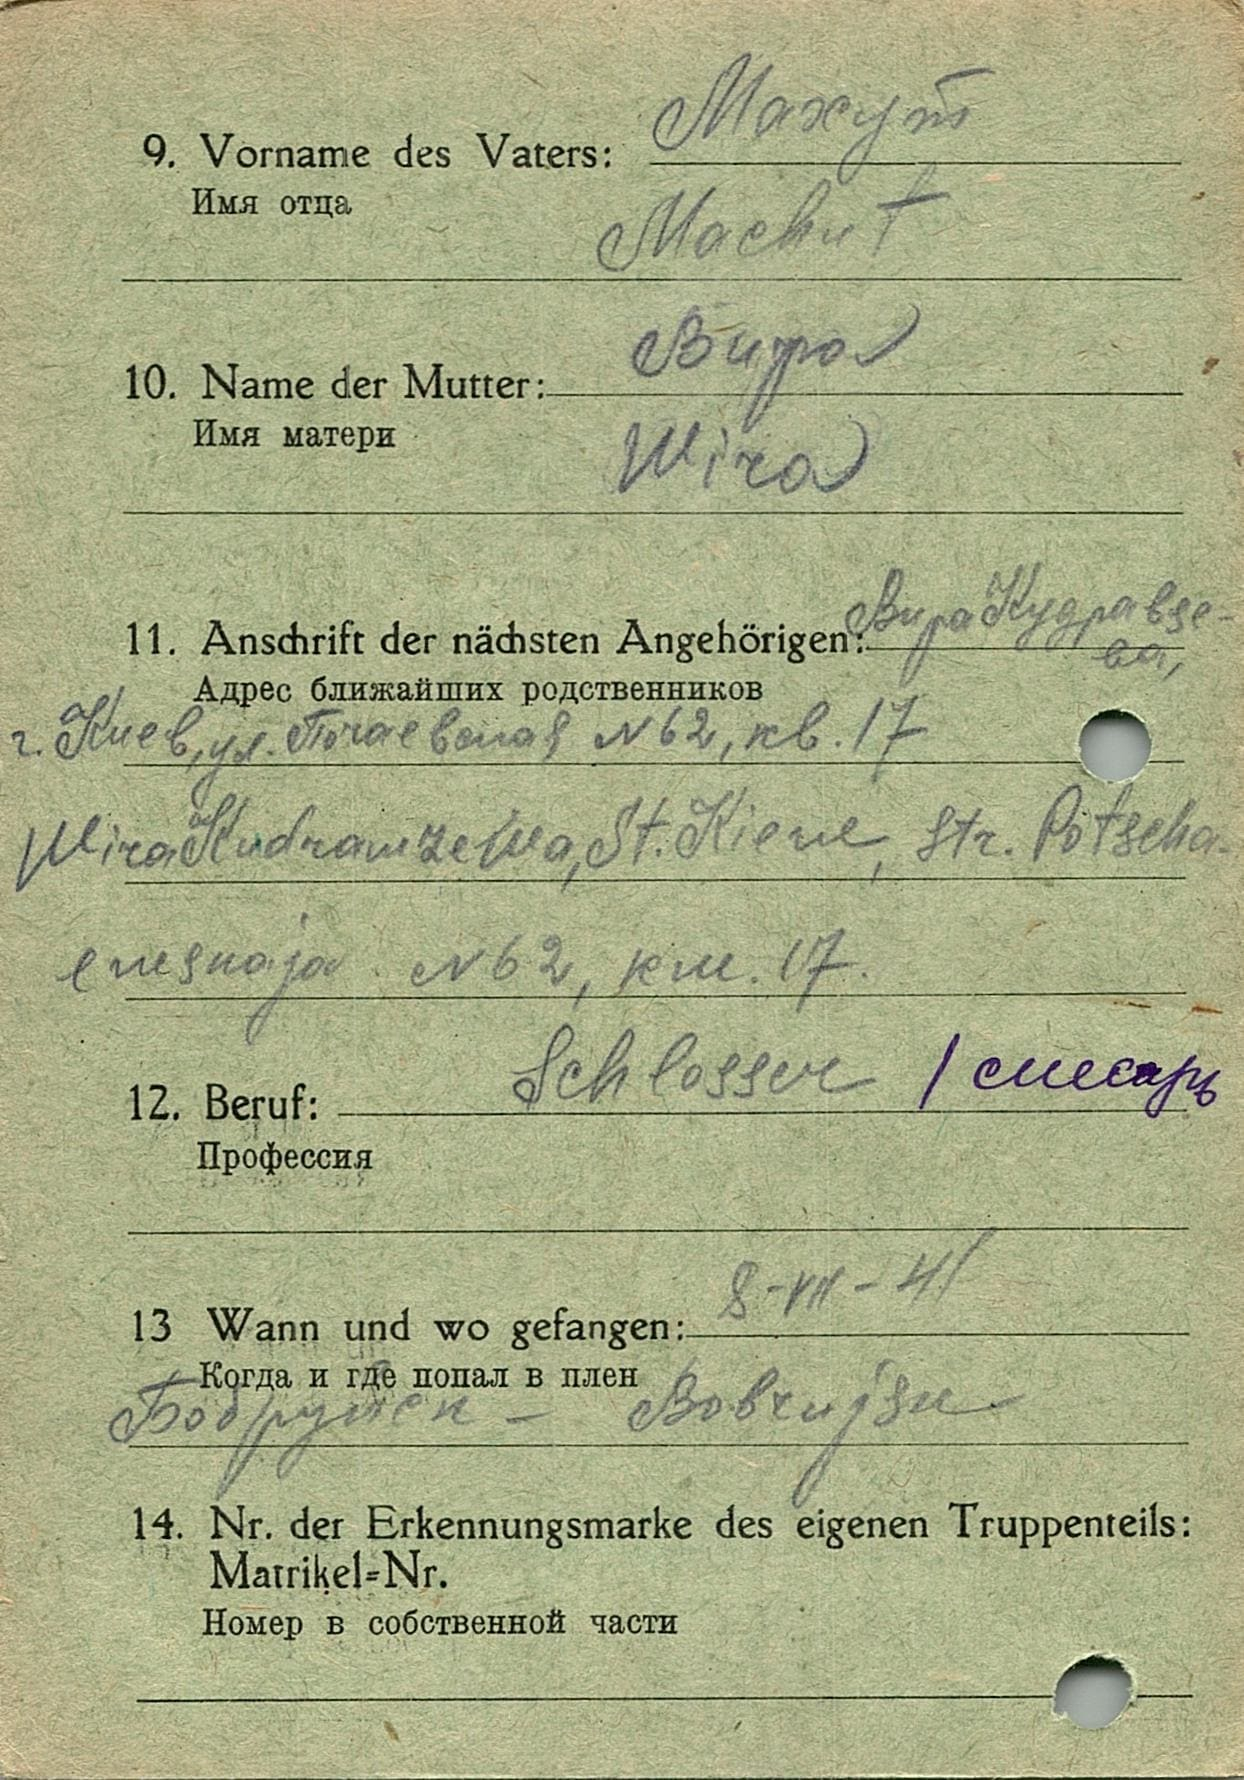 Махут
9. Vorname des Vaters:
Имя отца
Machut
Вира
10. Name der Mutter:
Имя матери
Wira
Вира Кудравзе-
11. Anschrift der nächsten Angehörigen:
ва,
Адрес ближайших родственников
г. Киев, ул. Почаевская №62, кв. 17
Wira Kudrawzewa, St. Kiew, Str. Potscha-
ewskaja №62, kw. 17.
12. Beruf: Schlosser / слесарь
Профессия
8-VII-41
13 Wann und wo gefangen:
Когда и где попал в плен
Бобруйск - Bobrujsk
14. Nr. der Erkennungsmarke des eigenen Truppenteils:
Matrikel-Nr.
Номер в собственной части